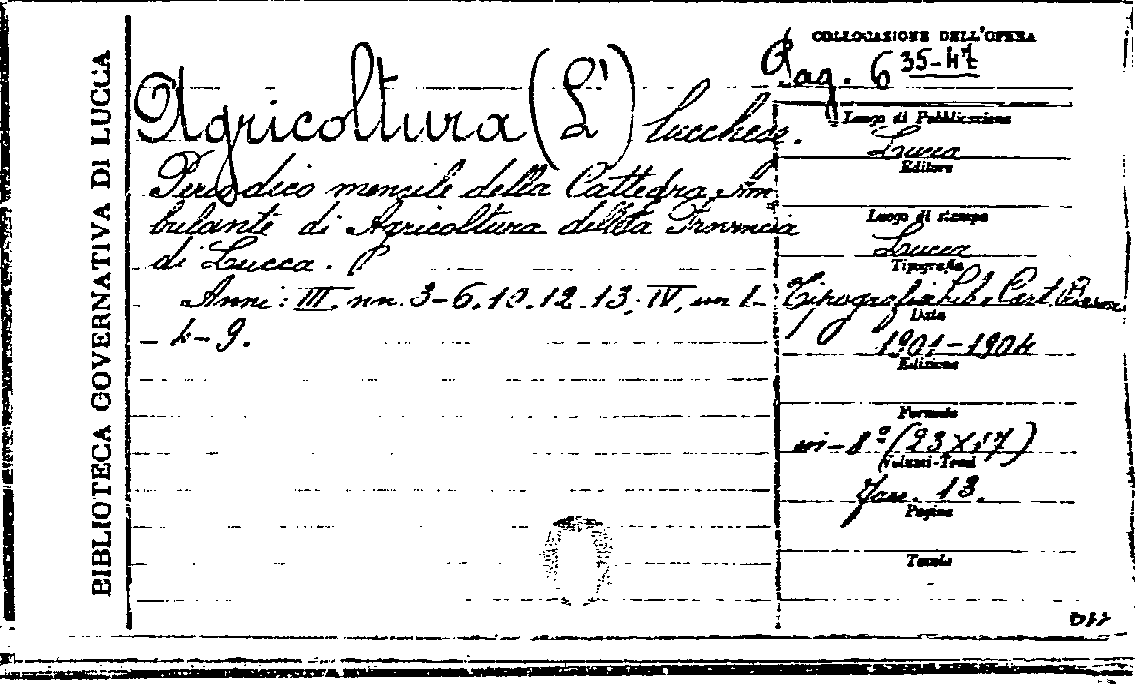 BIBLIOTECA GOVERNATIVA DI LUCCA
COLLOCASIONE DELL'OPERA
Pag. 6 35-47
Agricoltura (L') lucchese.
Periodico mensile della Cattedra Am
bulante di Agricoltura della Provincia
di Lucca.
Anni: III. nn. 3-6. 10. 12. 13. IV, nn 1-
4-9.
Luogo di Pubblicazione
Lucca
Editore
Luogo di stampa
Lucca
Tipografia
Tipografia Lib. e Cart.
Data
1901-1904
Edizione
Formato
in-8º (23 X 17)
Volumi-Tomi
Fasc. 13.
Pagine
Tavole